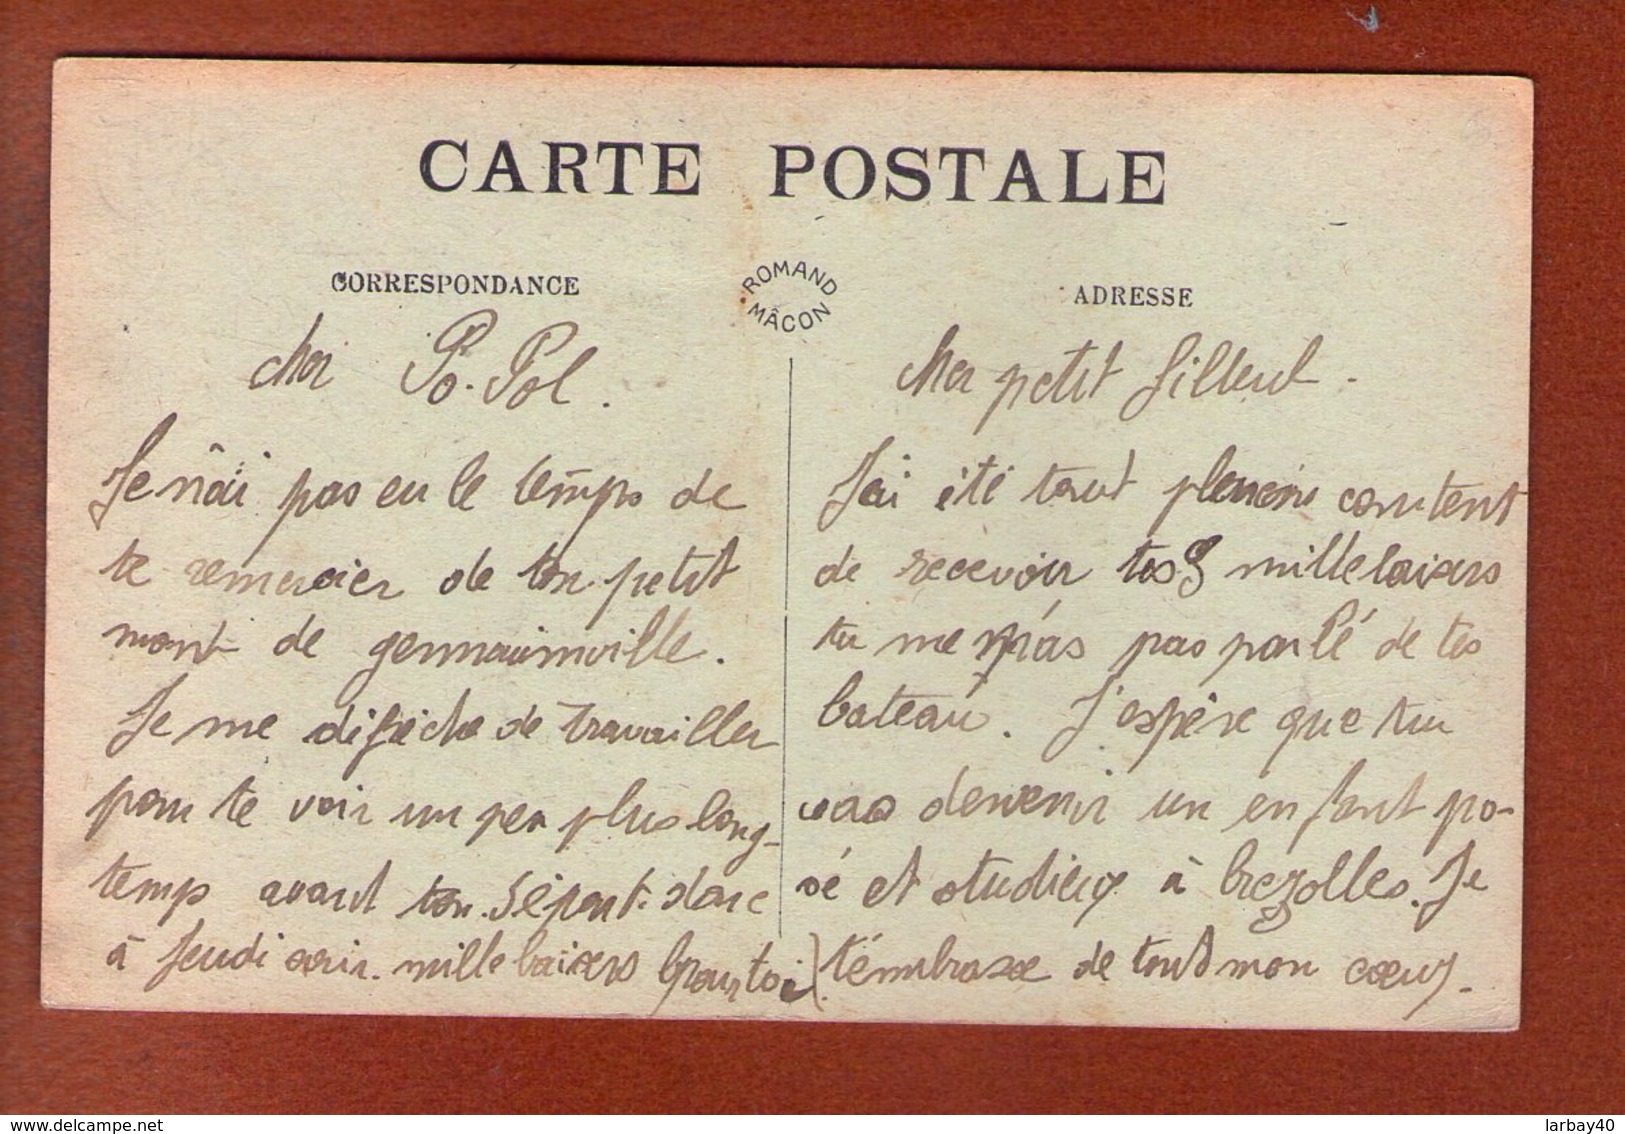 CARTE POSTALE
CORRESPONDANCE
ROMAND
MÂCON
ADRESSE
cher Po-Pol.
Je n'ai pas eu le temps de
te remercier de ton petit
mont de germainville.
Je me dipèche de travailler
pour te voir un peu plus long-
temp avant ton départ. donc
à Jeudi soir. mille baisers (pour toi)
cher petit filleul.
J'ai été tout pleins content
de recevoir tes 8 mille baisers
tu me n'as pas parlé de tes
bateau. J'espère que tu
vas devenir un enfant po-
sé et studieux à brezolles. Je
t'embrasse de tout mon coeur.
www.delcampe.net
larbay40